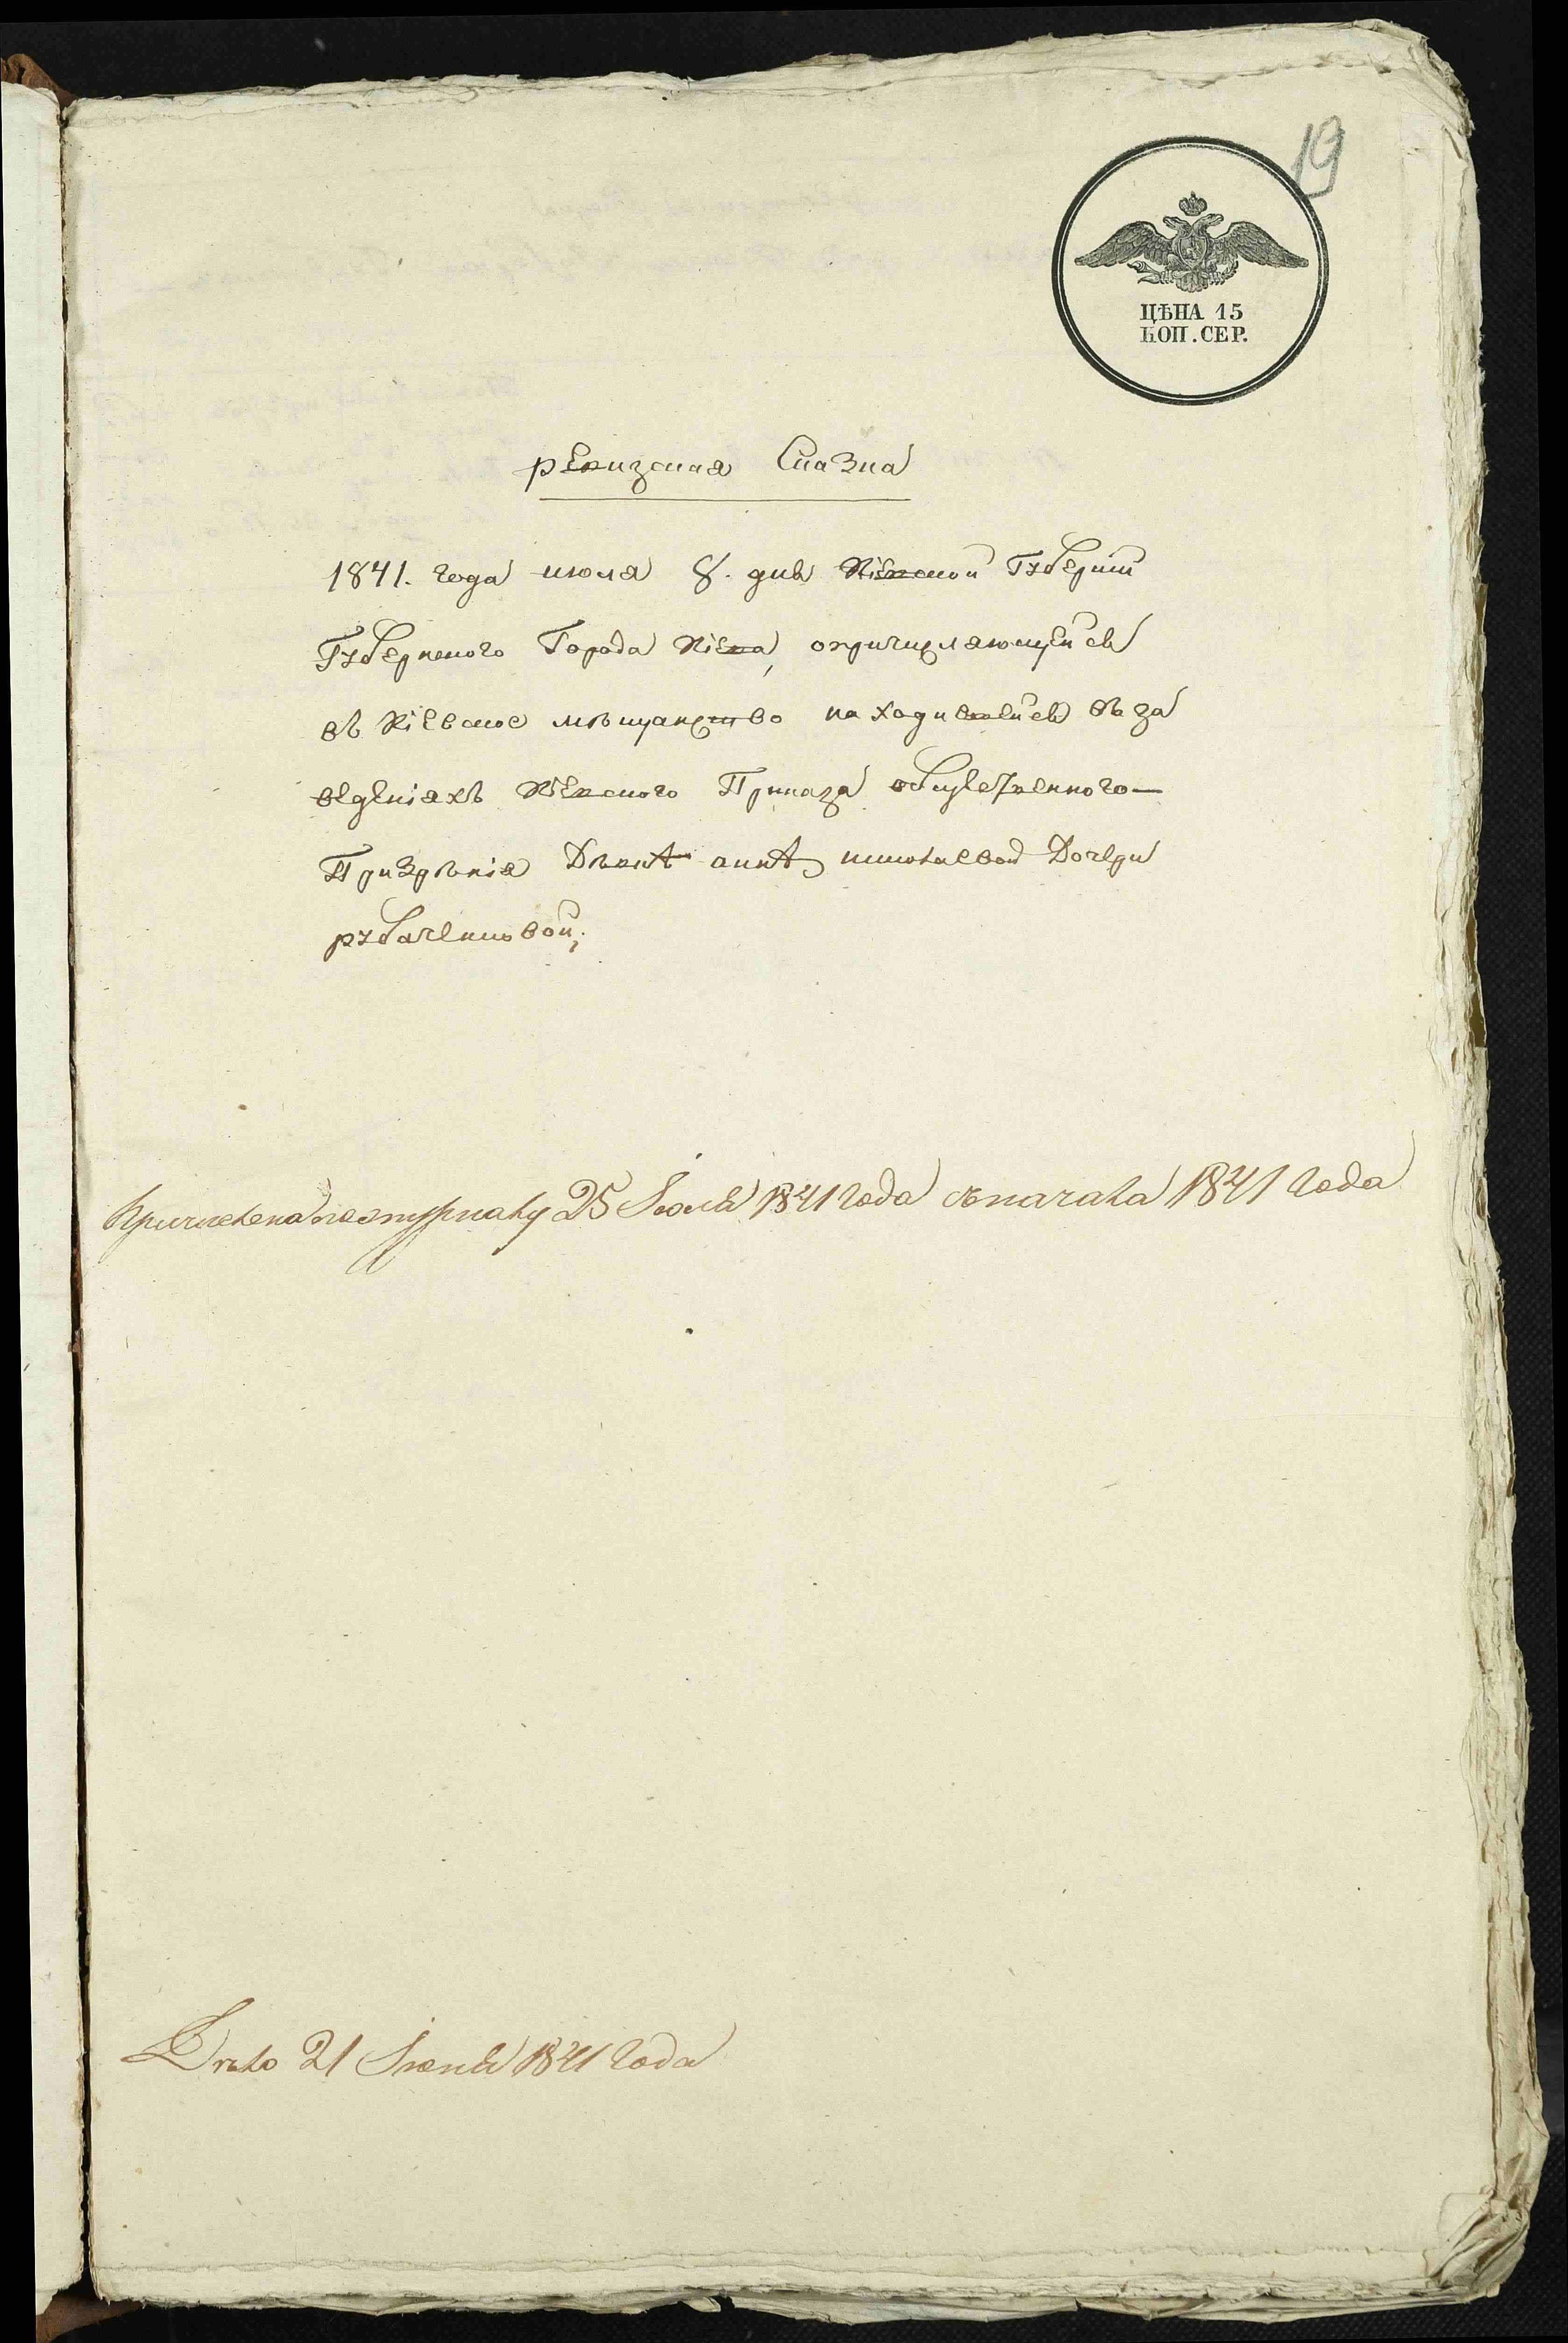 19
ЦѢНА 15
КОП. СЕР.
ревизская Сказка
1841. года июля 8. дня Кіевской Губерніи
Губернского Города Кіева, о причисляющейся
въ Кіевское мѣщанство находившейся въ за
веденіяхъ Кіевского Приказа общественного
Призрѣнія Дѣвкѣ аннѣ николаевой Дочери
рубаченковой;
Причислена по журналу 25 Іюля 1841 года съ начала 1841 года
21 1841 года